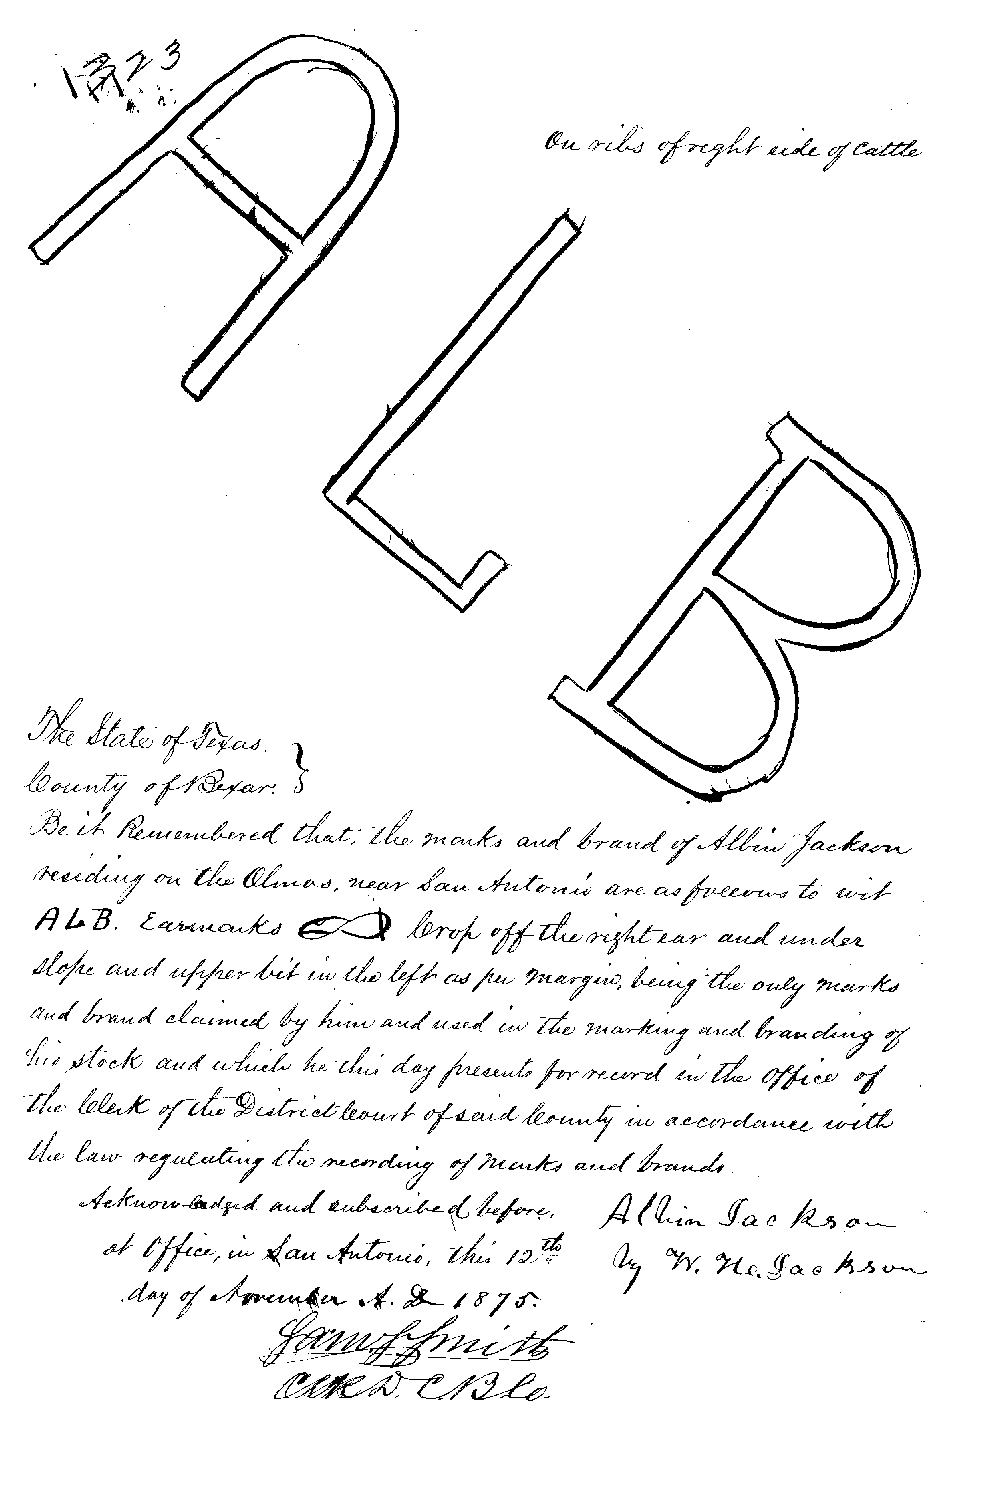 1323
On ribs of right side of Cattle
A
L
B
The State of Texas.
County of Bexar.
Be it Remembered that, the marks and brand of Albin Jackson
residing on the Olmos, near San Antonio are as follows to wit
ALB. Earmarks Crop off the right ear and under
slope and upper bit in the left as per margin, being the only marks
and brand claimed by him and used in the marking and branding of
his stock and which he this day presents for record in the Office of
the Clerk of the District Court of said County in accordance with
the law regulating the recording of Marks and brands.
Acknowledged and subscribed before,
at Office, in San Antonio, this 12th
day of November A. D 1875.
Albin Jackson
by W. He. Jackson
Sam S Smith
Clk D. C B Co.